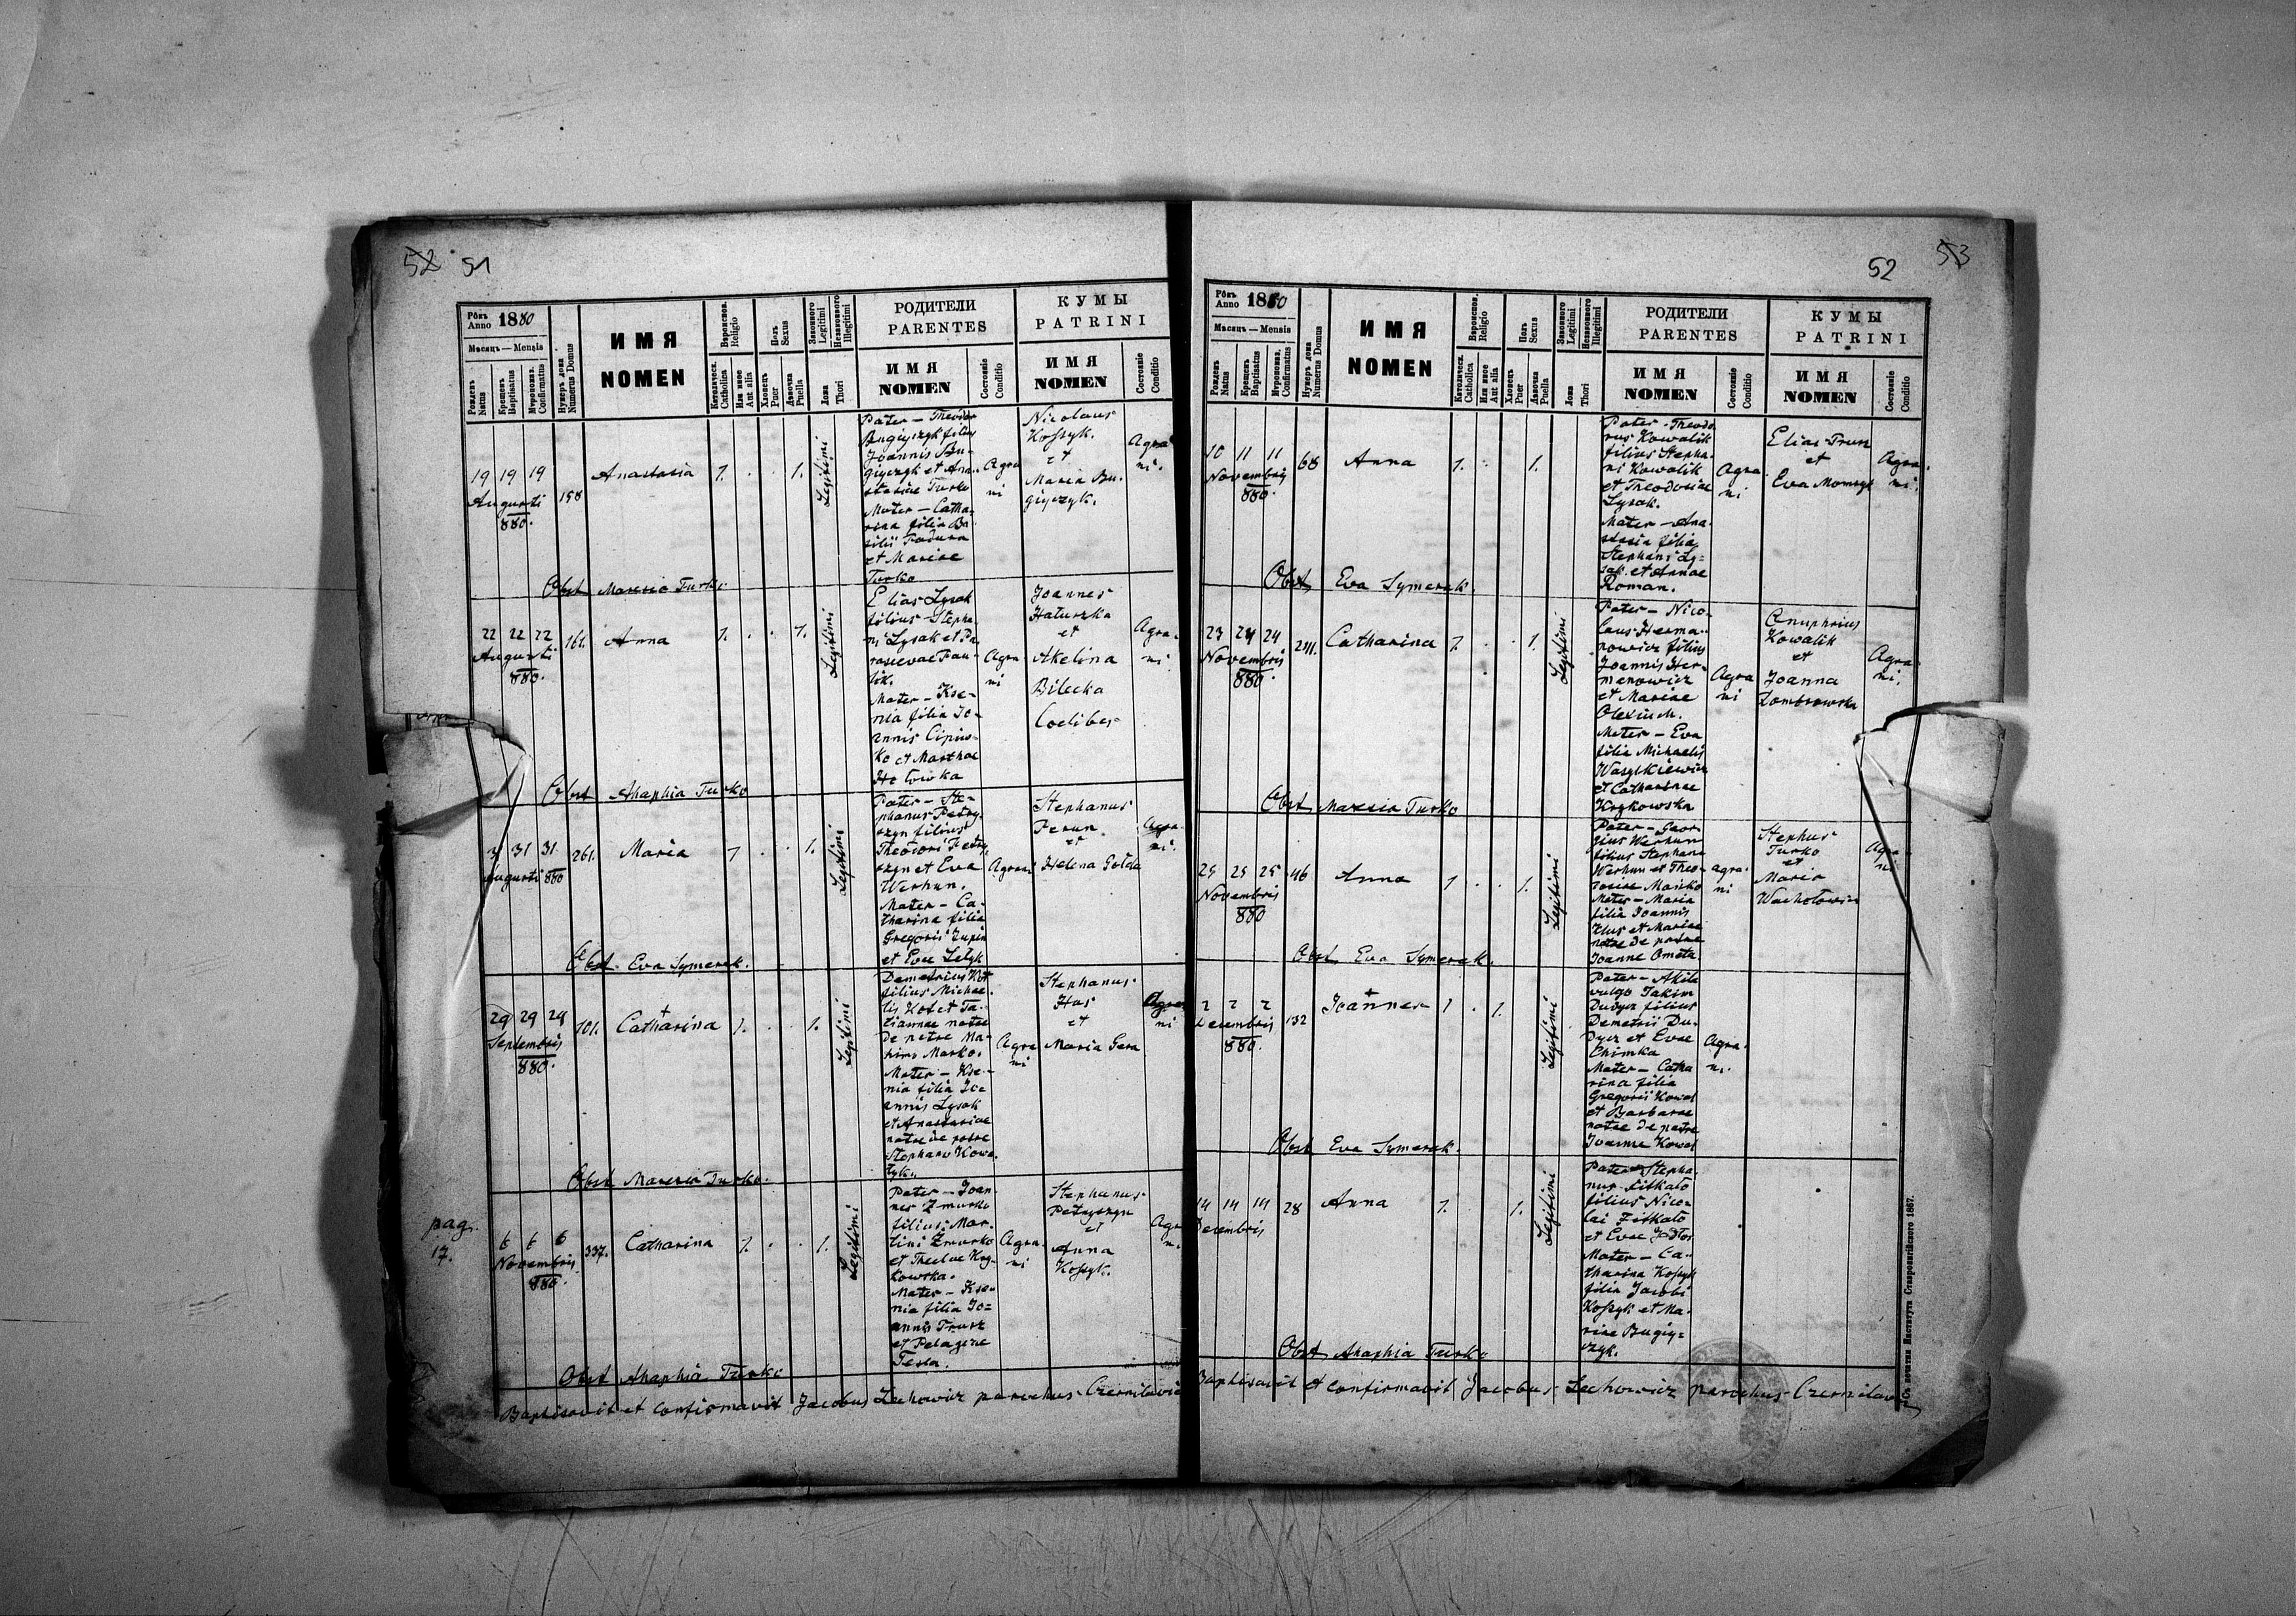 52 51
Рôкъ Anno 1880
Мѣсяць — Mensis
Рожденъ Natus
Крещенъ Baptisatus
Мvропомаз. Confirmatus
Нумеръ дома Numerus Domus
ИМЯ
NOMEN
Вѣроисповѣд. Religio
Католическ. Catholica
Или иное Aut alia
Полъ Sexus
Хлопець Puer
Дѣвочка Puella
Законного Legitimi
Незаконного Illegitimi
Ложа Thori
РОДИТЕЛИ
PARENTES
ИМЯ
NOMEN
Состояніе Conditio
КУМЫ
PATRINI
ИМЯ
NOMEN
Состояніе Conditio
19 19 19
Augusti
880.
158
Anastasia
1. . . 1.
Legitimi
Pater – Theodor
Bugiyczyk filius
Joannis Bu-
giyczyk et Ana-
stasiae Turko
Mater – Catha-
rina filia Ba-
silii Fedura
et Mariae
Turko
Agra
ni
Nicolaus
Kossyk.
et
Maria Bu-
giyczyk.
Agra
ni.
Obst Maresia Turko
22 22 22
Augusti
880.
161.
Anna
1. . . 1.
Legitimi
Elias Lysak
filius Stepha-
ni Lysak et Pa-
rascevae Pau-
lik.
Mater – Kse-
nia filia Jo-
annis Cipiw-
ko et Marthae
Hotowka
Agra
ni
Joannes
Haturzka
et
Akelina
Bilecka
Coelibes
Agra-
ni
Obst Ahaphia Turko
31 31 31
Augusti 880
261.
Maria
1 . . 1.
Legitimi
Pater – Ste-
phanus Petry-
szyn filius
Theodori Petry-
szyn et Eva
Werhun.
Mater – Ca-
tharina filia
Gregorii Zupin
et Evae Letyk
Agrani
Stephanus
Perun.
et
Helena Golda
Agra-
ni.
Obst. Eva Symerek.
29 29 29
Septembris
880.
101.
Catharina
1. . . 1.
Legitimi
Demetrius Kot
filius Michae-
lis Kot et Ta-
tiannae natae
de patre Ma-
ximo Marko.
Mater – Kse-
nia filia Jo-
annis Lysak
et Anastasiae
natae de patre
Stephano Kowa-
lyk.
Agra
ni
Stephanus
Hus
et
Maria Gera
Agra
ni
Obst Maresia Turko.
pag.
17.
6 6 6
Novembris
880.
337.
Catharina
1. . . 1.
Legitimi
Pater – Joan-
nes Zmurko
filius Mar-
tini Zmurko
et Theclae Kry-
kowska.
Mater – Kse-
nia filia Jo-
annis Trusz
et Pelagiae
Tesla.
Agra-
ni
Stephanus
Petryszyn
et
Anna
Kossyk.
Agra
ni
Obst Ahaphia Turko
Baptisavit et confirmavit Jacobus Lechowicz parochus Czernilaviensis
52 53
Рôкъ Anno 1880
Мѣсяць — Mensis
Рожденъ Natus
Крещенъ Baptisatus
Мvропомаз. Confirmatus
Нумеръ дома Numerus Domus
ИМЯ
NOMEN
Вѣроисповѣд. Religio
Католическ. Catholica
Или иное Aut alia
Полъ Sexus
Хлопець Puer
Дѣвочка Puella
Законного Legitimi
Незаконного Illegitimi
Ложа Thori
РОДИТЕЛИ
PARENTES
ИМЯ
NOMEN
Состояніе Conditio
КУМЫ
PATRINI
ИМЯ
NOMEN
Состояніе Conditio
10 11 11
Novembris
880.
68
Anna
1. . 1.
Pater – Theodo-
rus Kowalik
filius Stepha-
ni Kowalik
et Theodosiae
Lysak.
Mater – Ana-
stasia filia
Stephani Ly-
sak et Annae
Roman.
Agra-
ni
Elias Trusz
et
Eva Momryk
Agra-
ni.
Obst Eva Symerek.
23 24 24
Novembris
880.
Catharina
1. . 1.
Legitimi
Pater – Nico-
laus Herma-
nowicz filius
Joannis Her-
manowicz
et Mariae
Olexiuch.
Mater – Eva
filia Michaelis
Wasylkiewicz
et Catharinae
Krykowska
Agra
ni
Onuphrius
Kowalik
et
Joanna
Dombrowska
Agra-
ni.
Obst Maresia Turko
25 25 25
Novembris
880
46
Anna
1 . . 1.
Legitimi
Pater – Geor-
gius Werhun
filius Stephani
Werhun et Theo-
dosiae Marko
Mater – Maria
filia Joannis
Hus et Mariae
natae de patre
Joanne Ometa
agra-
ni
Stephus
Turko
et
Maria
Wacholowicz
Agra-
ni
Obst Eva Symerek.
2 2 2
Decembris
880.
132
Joannes
1 . 1.
Legitimi
Pater – Akila
vulgo Jakim
Dudycz filius
Demetrii Du-
dycz et Evae
Chimka
Mater – Catha
rina filia
Gregorii Kowal
et Barbarae
natae de patre
Joanne Kowal
Agra-
ni.
Obst Eva Symerek.
14 14 14
Decembris
28
Anna
1. . 1.
Legitimi
Pater – Stepha-
nus Fitkalo
filius Nico-
lai Fitkalo
et Evae Jodlos
Mater – Ca-
tharina Kossyk
filia Jacobi
Kossyk et Ma-
riae Bugiy-
czyk.
Obst Ahaphia Turko
Baptisavit et confirmavit Jacobus Lechowicz parochus Czernilav
Съ печатни Института Ставропигійского 1867.